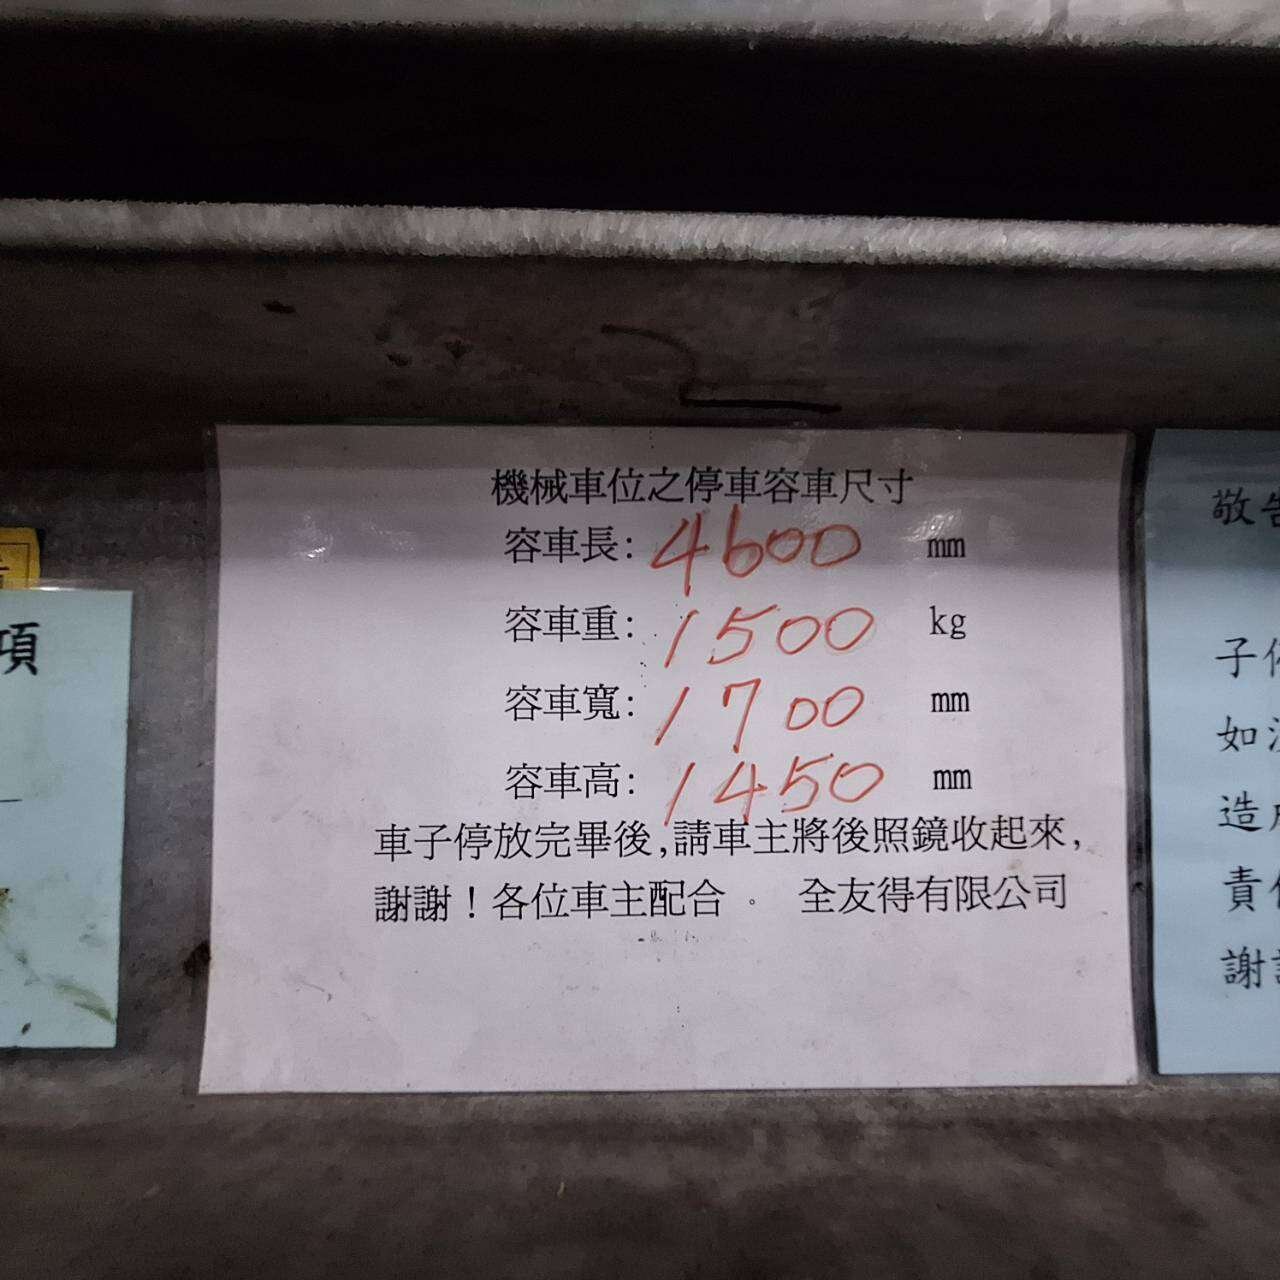 項
機械車位之停車容車尺寸
容車長: 4600 mm
容車重: 1500 kg
容車寬: 1700 mm
容車高: 1450 mm
車子停放完畢後,請車主將後照鏡收起來,
謝謝!各位車主配合。 全友得有限公司
敬告
子
如
造
責
謝